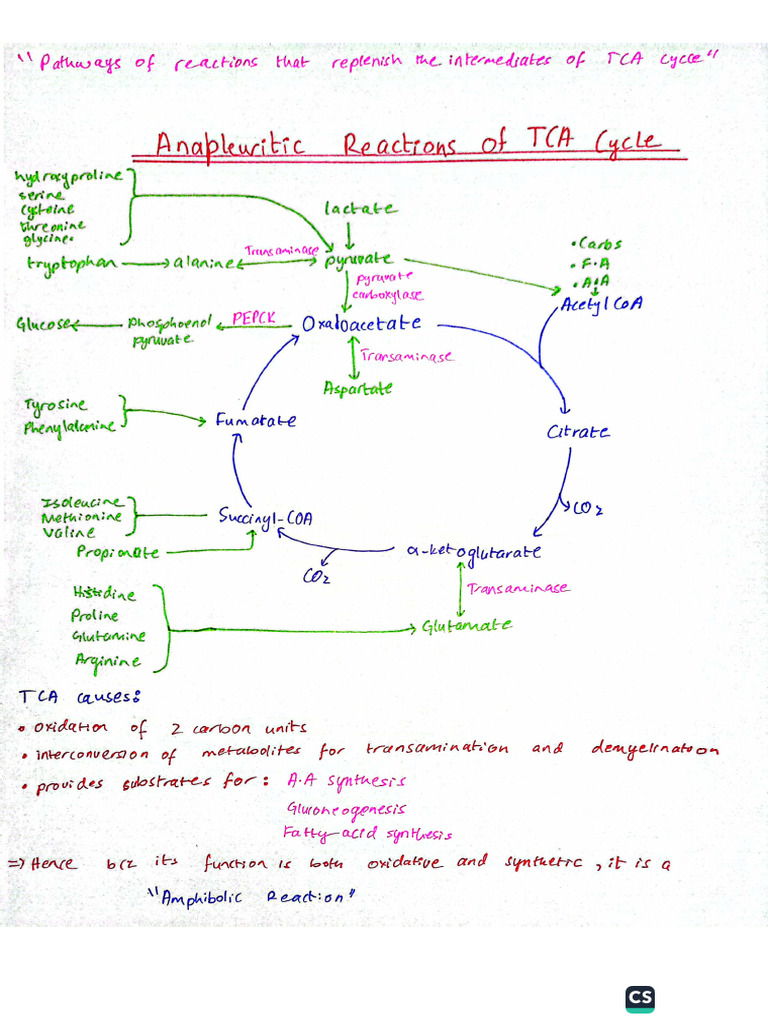 "Pathways of reactions that replenish the intermediates of TCA cycle"
Anapleuritic Reactions of TCA Cycle
hydroxyproline
serine
cysteine
threonine
glycine.
lactate
tryptophan
alanine
Transaminase
pyruvate
• Carbs
• F.A
• A.A
Acetyl CoA
pyruvate
carboxylase
Glucose
phosphoenol
pyruvate
PEPCK
Oxaloacetate
Transaminase
Aspartate
Tyrosine
Phenylalanine
Fumatate
Citrate
Isoleucine
Methionine
Valine
Succinyl-COA
CO2
Propionate
α-ketoglutarate
CO2
Transaminase
Histidine
Proline
Glutamine
Arginine
Glutamate
TCA causes:
• oxidation of 2 carbon units
• interconversion of metabolites for transamination and demyelination
• provides substrates for: A.A synthesis
Gluconeogenesis
Fatty-acid synthesis
=> Hence bcz its function is both oxidative and synthetic, it is a
"Amphibolic Reaction"
CS